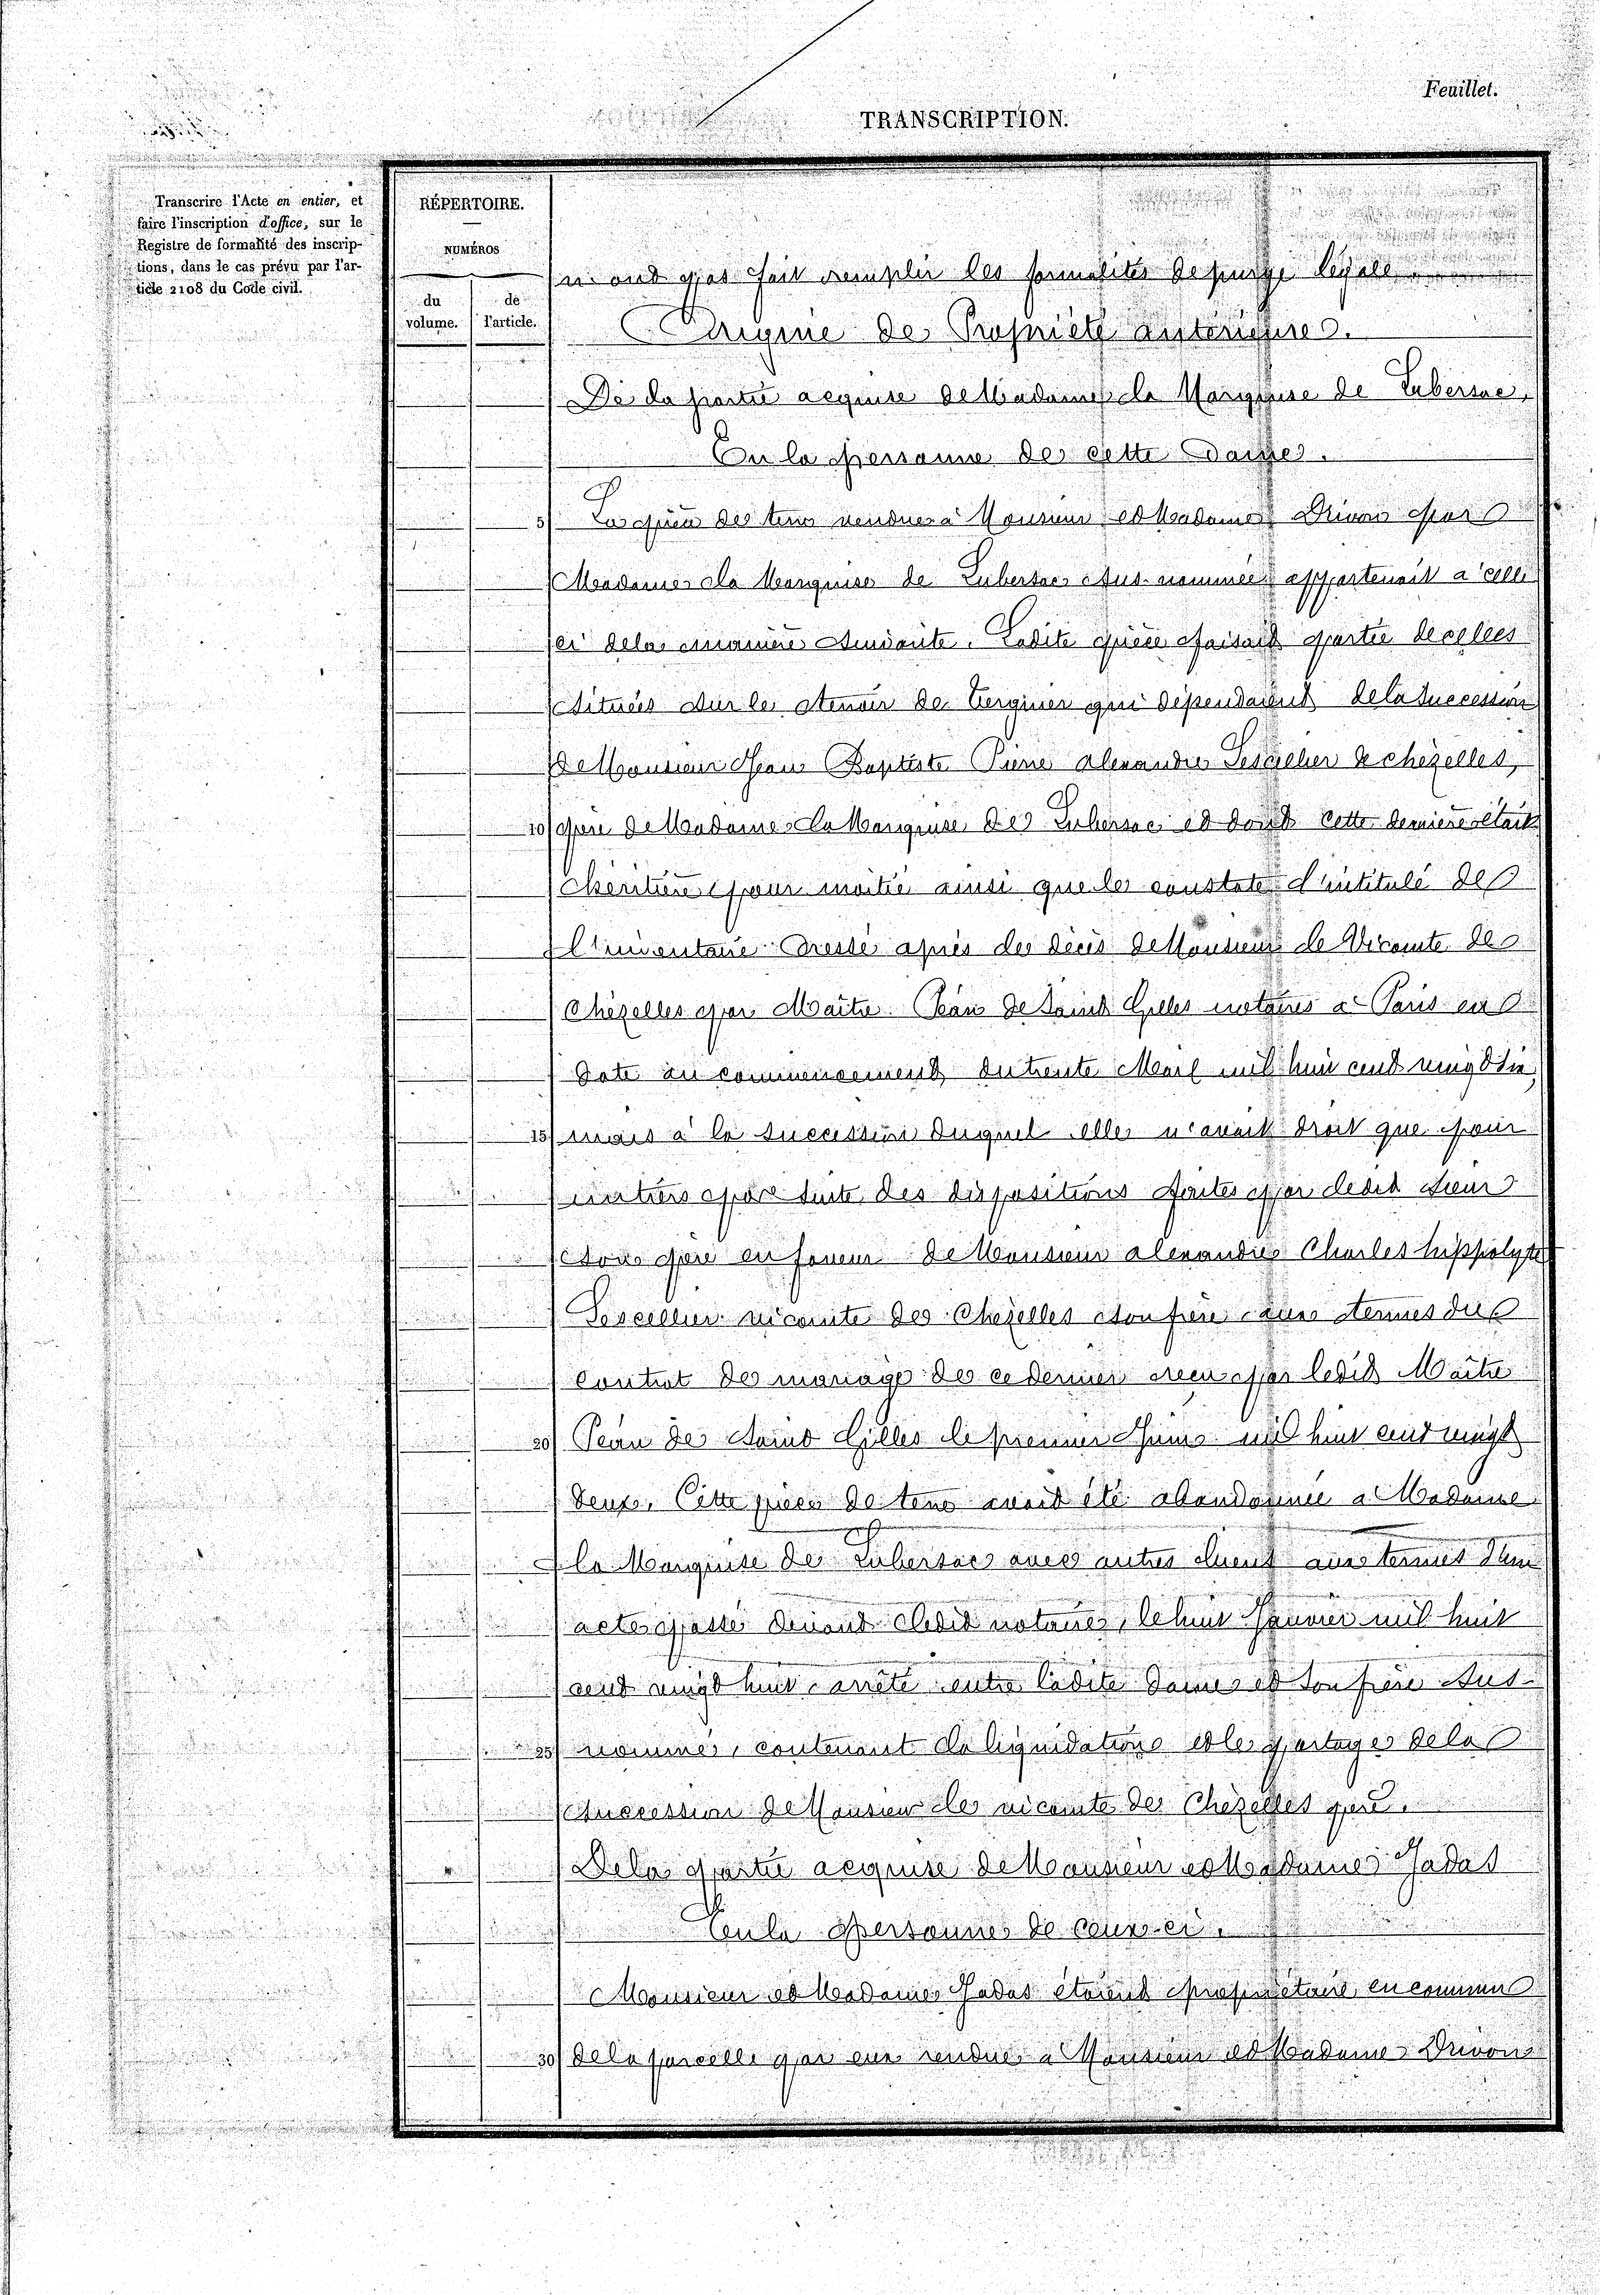 Feuillet.
TRANSCRIPTION.
Transcrire l'Acte en entier, et
faire l'inscription d'office, sur le
Registre de formalité des inscrip-
tions, dans le cas prévu par l'ar-
ticle 2108 du Code civil.
RÉPERTOIRE.
NUMÉROS
du volume.
de l'article.
n'ont pas fait remplir les formalités de purge légale
Origine de Propriété antérieure.
De la partie acquise de Madame la Marquise de Lubersac,
En la personne de cette Dame.
5 La pièce de terre vendue à Monsieur et Madame Drivon par
Madame la Marquise de Lubersac sus-nommée appartenait à celle
ci de la manière suivante. Ladite pièce faisait partie de celles
situées sur le de qui dépendaient de la succession
de Monsieur Jean Baptiste Pierre alexandre Lescellier de chézelles,
10 père de Madame La Marquise de Lubersac et dont cette dernière était
héritière pour moitié ainsi que le constate l'intitulé de
l'inventaire dressé après le décès de Monsieur le Vicomte de
Chézelles par Maître Péan de Saint Gilles notaire à Paris en
date au commencement du trente Mai mil huit cent vingt
15 mais à la succession duquel elle n'avait droit que pour
un tiers par suite des dispositions faites par ledit sieur
son père en faveur de Monsieur alexandre Charles hippolyte
Lescellier vicomte de Chézelles son frère aux termes du
contrat de mariage de ce dernier reçu par ledit Maître
20 Péan de Saint Gilles le premier Juin mil huit cent vingt
deux. Cette pièce de terre avait été abandonnée à Madame
la Marquise de Lubersac avec autres biens aux termes d'un
acte passé devant ledit notaire, le huit Janvier mil huit
cent vingt huit arrêté entre ladite dame et son frère sus-
25 nommé, contenant la liquidation et le partage de la
succession de Monsieur le vicomte de Chézelles père.
De la partie acquise de Monsieur et Madame Jadas
En la personne de ceux-ci.
Monsieur et Madame Jadas étaient propriétaires en commun
30 de la parcelle par eux vendue à Monsieur et Madame Drivon